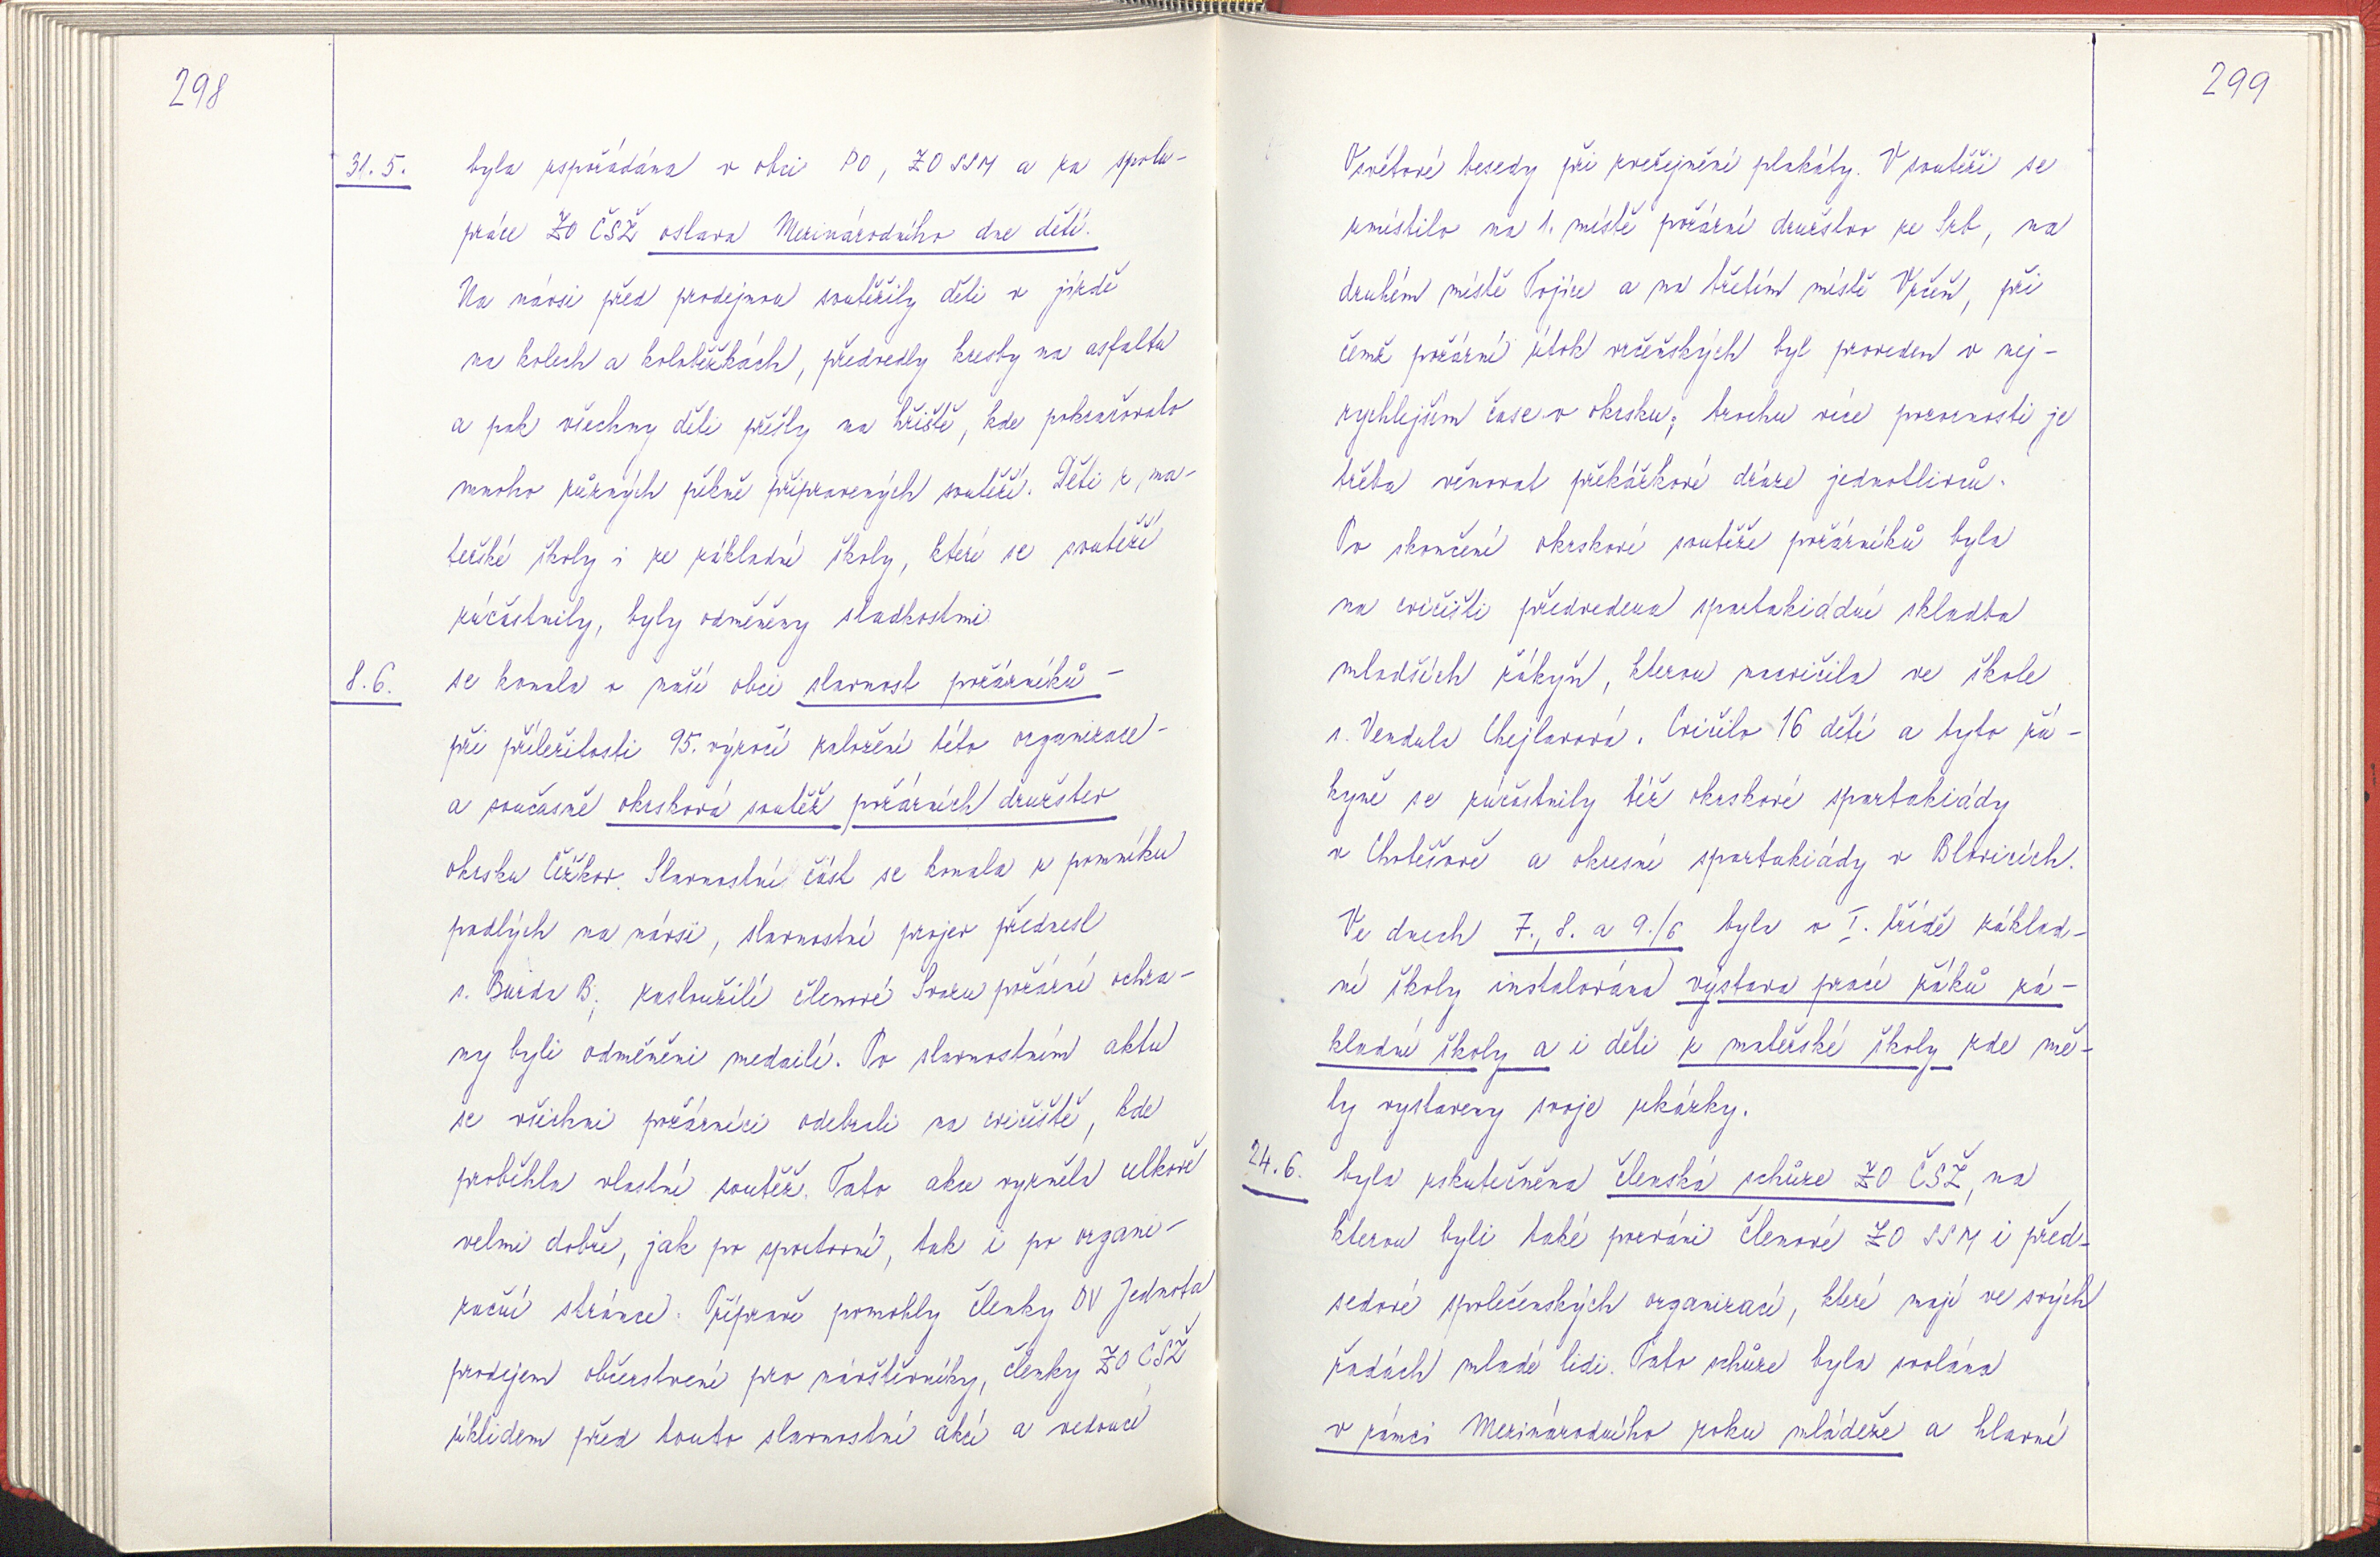 298
31.5. byla uspořádána v obci PO, ZO SSM a za spolu-
práce ZO ČSŽ oslava Mezinárodního dne dětí.
Na návsi před prodejnou soutěžily děti v jízdě
na kolech a koloběžkách, předvedly kresby na asfaltu
a pak všechny děti přešly na hřiště, kde pokračovalo
mnoho různých pěkně připravených soutěží. Děti z ma-
teřské školy i ze základní školy, které se soutěží
zúčastnily, byly odměněny sladkostmi
8.6. se konala v naší obci slavnost požárníků –
při příležitosti 95. výročí založení této organizace –
a současně okrsková soutěž požárních družstev
okrsku Čížkov. Slavnostní část se konala u pomníku
padlých na návsi, slavnostní projev přednesl
s. Burda B., zasloužilí členové Svazu požární ochra-
ny byli odměněni medailí. Po slavnostním aktu
se všichni požárníci odebrali na cvičiště, kde
proběhla vlastní soutěž. Tato akce vyzněla celkově
velmi dobře, jak po sportovní, tak i po organi-
zační stránce. Přípravě pomohly členky DV Jednota
prodejem občerstvení pro návštěvníky, členky ZO ČSŽ
úklidem před touto slavnostní akcí a vedoucí
299
Osvětové besedy při zveřejnění plakáty. V soutěži se
umístilo na 1. místě požární družstvo ze Srb, na
druhém místě Tojice a na třetím místě Vrčeň, při
čemž požární útok vrčeňských byl proveden v nej-
rychlejším čase v okrsku; trochu více pozornosti je
třeba věnovat překážkové dráze jednotlivců.
Po skončení okrskové soutěže požárníků byla
na cvičišti předvedena spartakiádní skladba
mladších žákyň, kterou nacvičila ve škole
s. Vendula Chejlavová. Cvičilo 16 dětí a tyto žá-
kyně se zúčastnily též okrskové spartakiády
v Chotěšově a okresní spartakiády v Blovicích.
Ve dnech 7., 8. a 9./6 byla v I. třídě základ-
ní školy instalována výstava prací žáků zá-
kladní školy a i děti z mateřské školy zde mě-
ly vystaveny svoje ukázky.
24.6. byla uskutečněna členská schůze ZO ČSŽ, na
kterou byli také pozváni členové ZO SSM i před-
sedové společenských organizací, které mají ve svých
řadách mladé lidi. Tato schůze byla svolána
v rámci Mezinárodního roku mládeže a hlavní